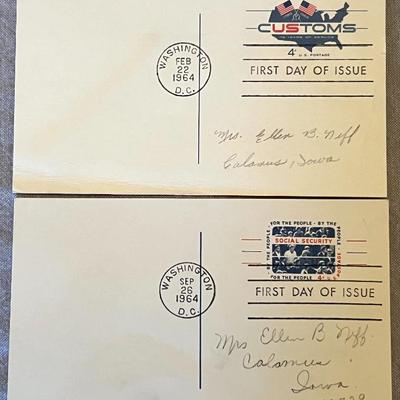 CUSTOMS
175 YEARS OF SERVICE
4¢ U.S. POSTAGE
WASHINGTON
FEB
22
1964
D.C.
FIRST DAY OF ISSUE
Mrs. Ellen B. Neff
Calamus, Iowa
FOR THE PEOPLE - BY THE PEOPLE - FOR THE PEOPLE - BY THE PEOPLE
SOCIAL SECURITY
4¢ U.S. POSTAGE
WASHINGTON
SEP
26
1964
D.C.
FIRST DAY OF ISSUE
Mrs Ellen B Neff.
Calamus
Iowa.